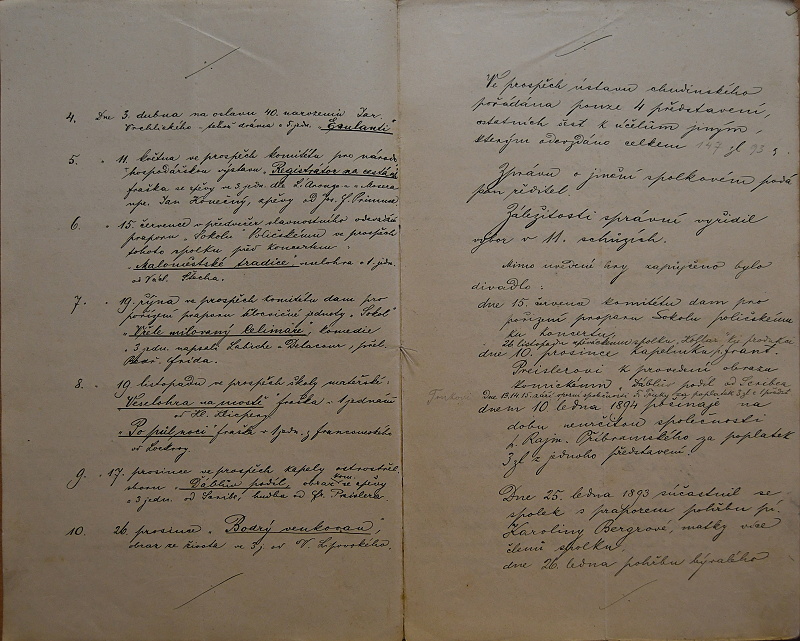 4. Dne 3. dubna na oslavu 40. narozenin Jar.
Vrchlického drama v 5 jedn. "Exulanti"
5. " 11. května ve prospěch komitétu pro národo
hospodářskou výstavu "Registrátor na cestách"
fraška se zpěvy ve 3 jedn. dle L'Arronge a Mosera
Jan Konečný, zpěvy od Jos.
6. " 15. července v předvečer slavnostního odevzdání
praporu "Sokolu" Poličskému ve prospěch
tohoto spolku před koncertem:
"Maloměstské tradice", veselohra v 1 jedn.
od Václ. Štecha.
7. " 19. října ve prospěch komitétu dam pro
pořízení praporu tělocvičné jednoty "Sokol"
"Vřele milovaní Celimáře", komedie
v 3 jedn. napsali Labiche a Delacour, přel.
Bedř. Frída.
8. " 19. listopadu ve prospěch školy mateřské:
"Veselohra na mostě" fraška v 1 jednání
od
"Po půlnoci" fraška v 1 jedn. z francouzského
od Lockroy.
9. " 17. prosince ve prospěch kapely ostrostřel.
sboru "Ďáblův podíl", obraz kom. se zpěvy
v 3 jedn. od hudba od Fr. Preislera.
10. 26. prosince "Bodrý venkovan",
obraz ze života ve 3 j. od V. Lipovského.
Ve prospěch ústavu chudinského
pořádána pouze 4 představení,
ostatních šest k účelům jiným,
kterým odevzdáno celkem 147 zl 93
Zprávu o jmění spolkovém podá
pan ředitel.
Záležitosti správní vyřídil
výbor v 11. schůzích.
Mimo uvedené hry zapůjčeno bylo
divadlo:
dne 15. června komitétu dam pro
pořízení praporu Sokolu poličskému
ku koncertu,
26. listopadu spolku
dne 10. prosince kapelníku frant.
Preislerovi k provedení obrazu
komického "Ďáblův podíl"
za poplatek 3 zl
dnem 10. ledna 1894 počínaje na
dobu neurčitou společnosti
p. Rajm. Příbramského za poplatek
3 zl z jednoho představení.
Dne 25. ledna 1893 súčastnil se
spolek s praporem pohřbu pí.
Karoliny Bergrové, matky více
členů spolku.
dne 26. ledna pohřbu bývalého